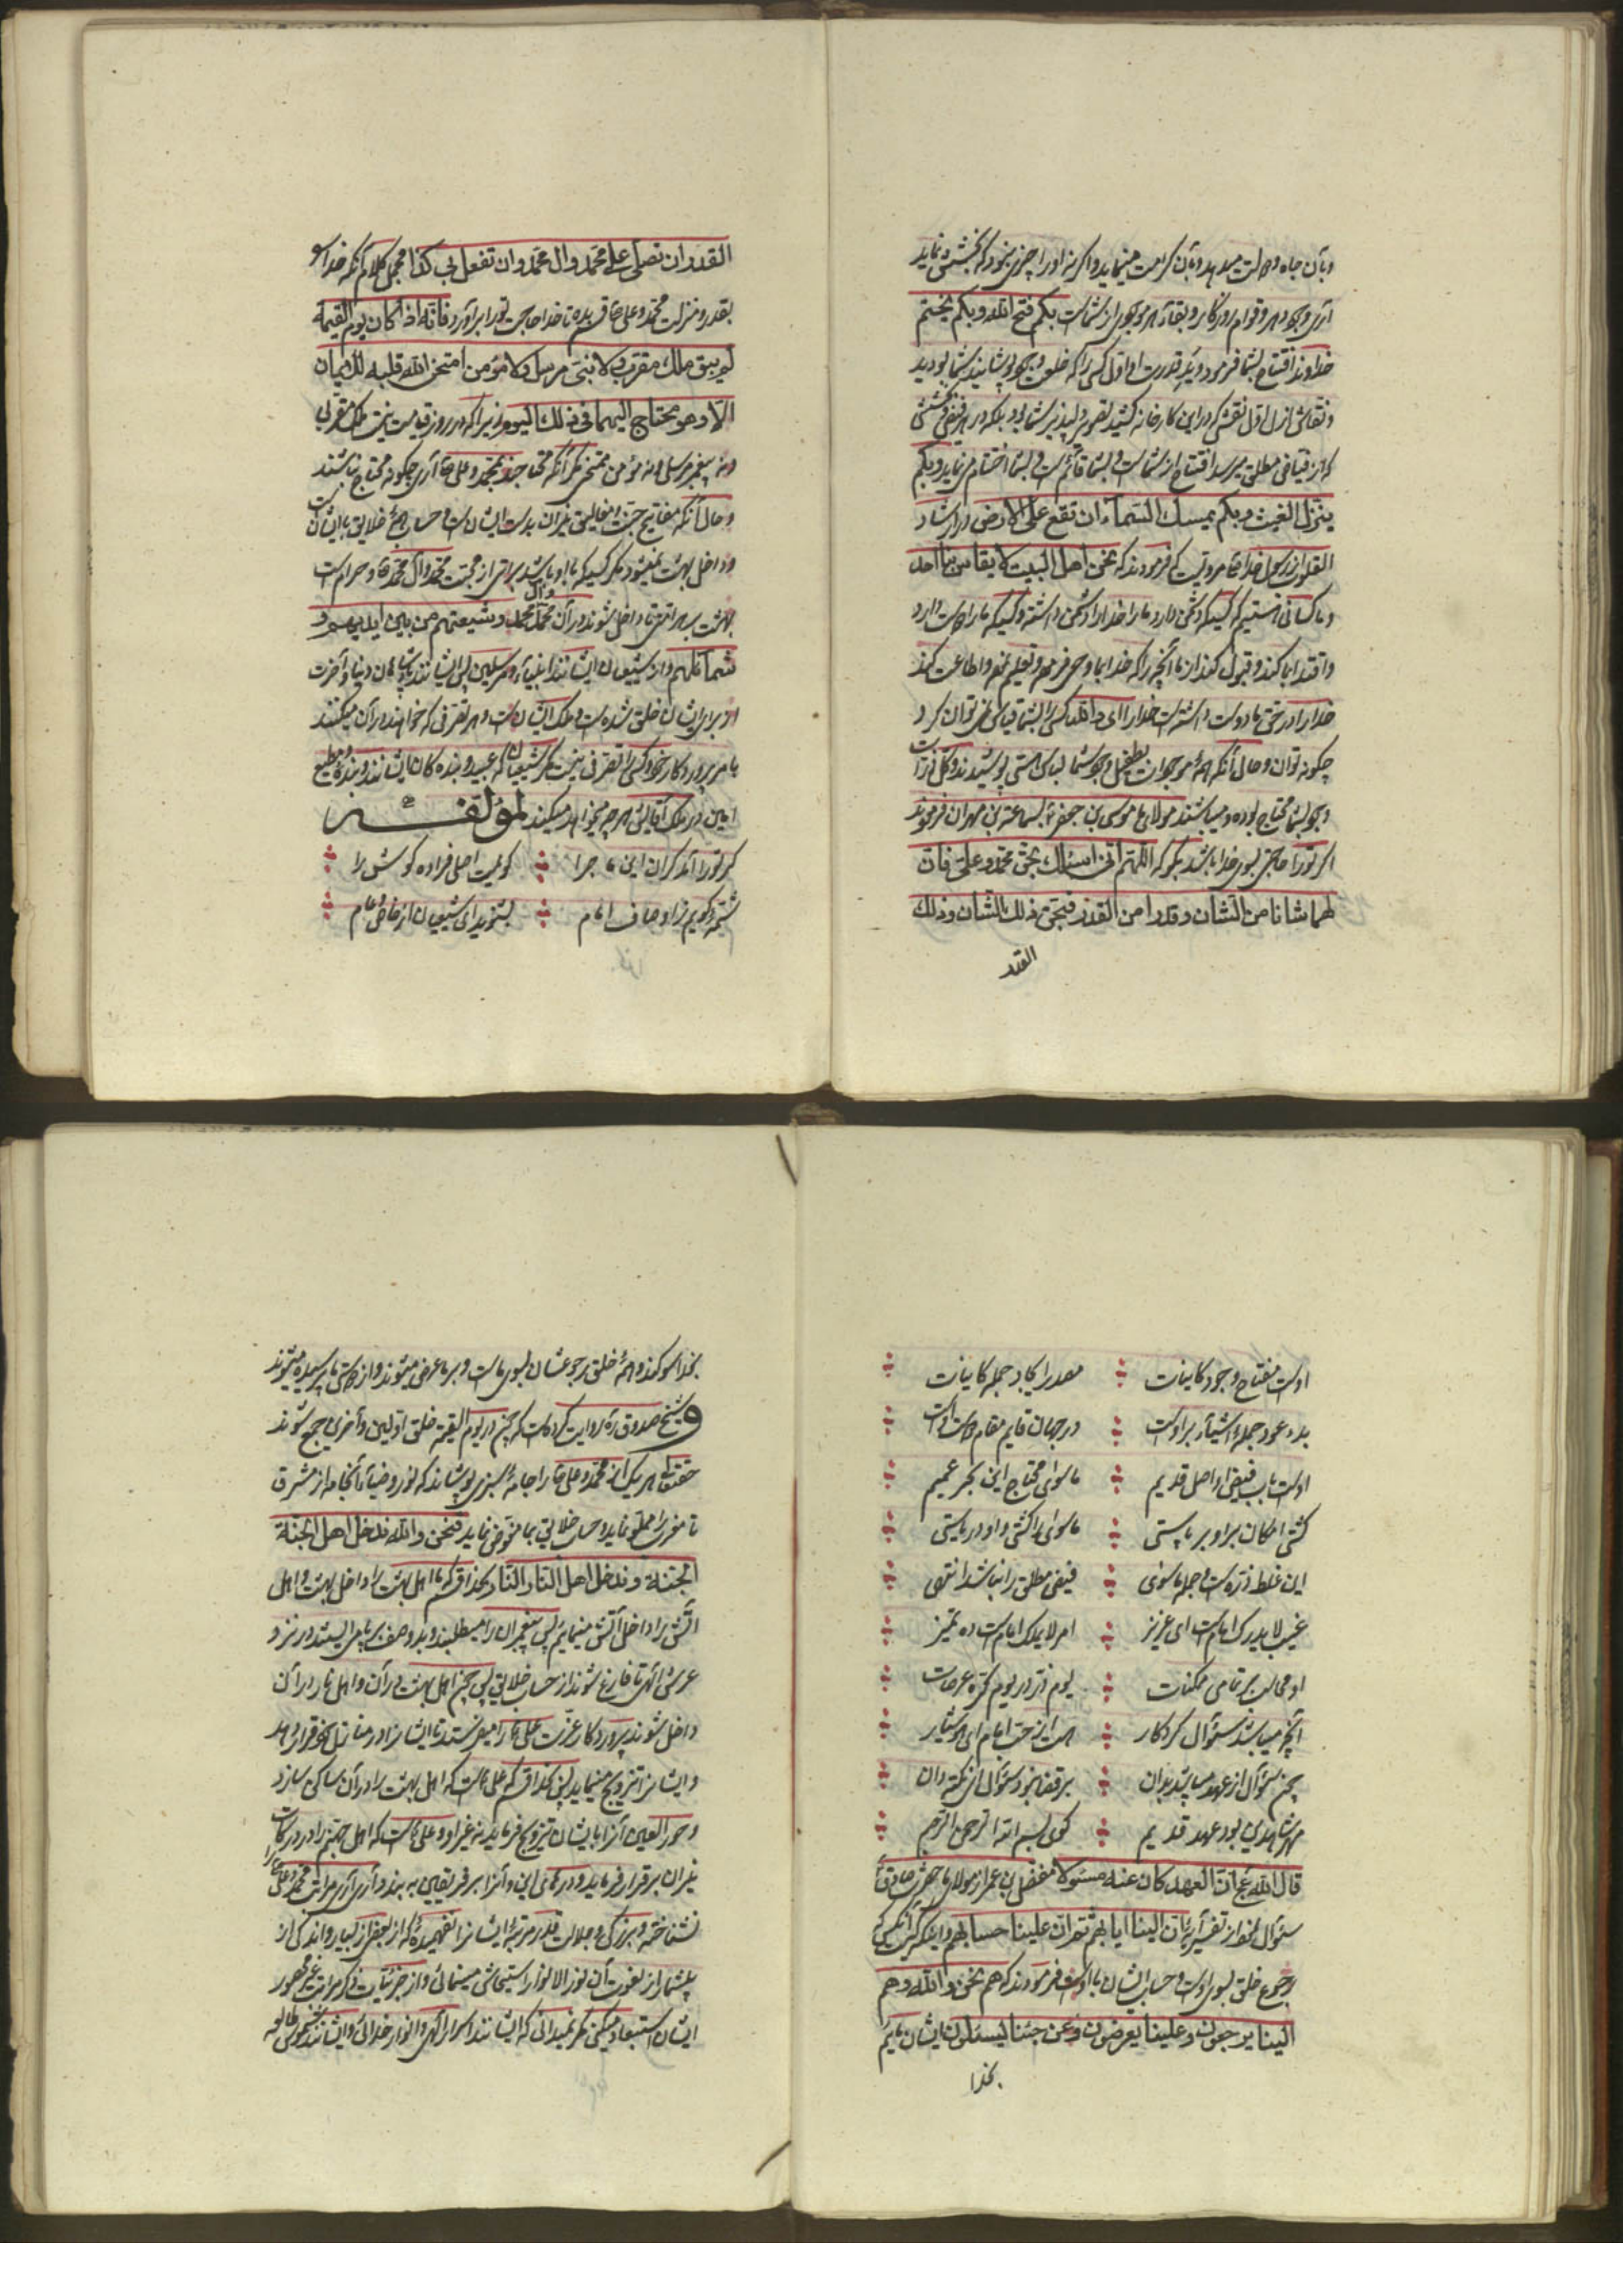 و بآن جاه و جلالت میدهد و بآن کرامت مینماید و اگر نه او را چیزی نبود که بخشش نماید
آری وجود هر و قوام روزگار و بقاء هر موجود از شماست بکم فتح الله و بکم یختم
خداوند افتتاح بشما فرمود و ید قدرت او اول کسی را که خلعت وجود پوشانید شما بودید
و نقاش ازل اول نقشی که در این کارخانه کشید تصویر دلپذیر شما بود بلکه هر فیض و بخششی
که از فیاض مطلق میرسد افتتاح از شماست و بشما قائم است و بشما اختتام می نماید و بکم
ینزل الغیث و بکم یمسک السماء ان تقع علی الارض در ارشاد
القلوب از رسول خدا ص مرویست که فرمودند که نحن اهل البیت لا یقاس بنا احد
و ما کسانی هستیم که کسیکه دشمن دارد ما را خدا را دشمن داشته و کسیکه ما را دوست دارد
و اقتدا بما کند و قبول کند از ما آنچه را که خدا بما وحی فرموده و تعلیم نموده و اطاعت کند
خدا را در حق ما دوست داشته است خدا را ای والله کسی را بشما قیاس نمی توان کرد
چگونه توان و حال آنکه همهٔ موجودات بطفیل وجود شما لباس هستی پوشیدند و کل ذرات
وجود بشما محتاج بوده و میباشند مولای ما موسی بن جعفر ع بسماعة بن مهران فرمودند
اگر تو را حاجتی بسوی خدا باشد بگو که اللهم انی اسئلک بحق محمد و علی فان
لهما شانا من الشان و قدرا من القدر فبحق ذلک الشان و ذلک
القدر
القدر ان تصلی علی محمد و ال محمد و ان تفعل بی کذا مجمل کلام آنکه خدا را
بقدر و منزلت محمد و علی ص قسم بده تا خدا حاجت تو را برآورد فانه اذا کان یوم القیمة
لم یبق ملک مقرب و لا نبی مرسل و لا مؤمن امتحن الله قلبه للایمان
الا و هو محتاج الیهما فی ذلک الیوم زیرا که در روز قیامت نیست ملک مقربی
و نه پیغمبر مرسلی و نه مؤمن ممتحنی مگر آنکه محتاجند بمحمد و علی ص آری چگونه محتاج نباشند
و حال آنکه مفاتیح جنت و مقالید نیران بدست ایشان است و حساب همهٔ خلایق با ایشان است
و داخل بهشت نمیشود مگر کسیکه با او باشد براتی از محبت محمد و آل محمد ص و حرام است
بهشت بر امتی تا داخل شوند در آن محمد و آل محمد و شیعتهم من بین ایدیهم و
شمائلهم و از شیعیان ایشانند انبیاء و مرسلین پس ایشانند پادشاهان دنیا و آخرت
از برای ایشان خلق شده است و ملک ایشان است و هر تصرفی که خواهند در آن میکنند
بامر پروردگار خود کسی را تصرفی نیست مگر شیعیان که عبید و بنده گان ایشانند و بندهٔ مطیع
امین در ملک آقایش هر چه میخواهد میکند لمؤلفه
گر تو را آمد گران این ماجرا ؞ گو نمیت اصلی فراده گوش را
شمه گویم ز اوصاف امام ؞ بشنوید ای شیعیان از خاص و عام
اوست مفتاح وجود کاینات ؞ مصدر ایجاد جمله کاینات
بدء و عود جملهٔ اشیآء بر اوست ؞ در جهان قایم مقام ذات اوست
اوست باب فیض و اصل قدیم ؞ ماسوی محتاج این بحر عمیم
کشتی امکان بر او بر پاستی ؞ ماسوی را کشتی و او دریاستی
این غلط ذره است جمله ماسوی ؞ فیض مطلق را نباشد انتهی
غیب لا یدرک امام است ای عزیز ؞ امر لا یملک امام است ده تمیز
او محاسب بر تمامی ممکنات ؞ یوم ذر در یوم کره عرصات
آنچه میباشد سئوال کردگار ؞ هست این حق امام ای هوشیار
چون سئوال از عهد میباشد بدان ؞ بر قفا نبود سئوال از نکته دان
هر شاهدی بود عهد قدیم ؞ گوی بسم الله الرحمن الرحیم
قال الله ع ان العهد کان عنه مسئولا مفضل بن عمر از مولای ما جعفر صادق ع
سئوال نمود از تفسیر آیهٔ ان الینا ایابهم ثم ان علینا حسابهم و اینکه کیست آنکسی که
رجوع خلق بسوی اوست و حساب ایشان با اوست فرمودند که هم نحن و الله و هم
الینا یرجعون و علینا یعرضون و عن حبنا لیسئلون ایشان مائیم
بخدا
بخدا سوگند و همهٔ خلق رجوعشان بسوی ماست و بر ما عرض میشوند و از دوستی ما پرسیده میشوند
و شیخ صدوق ره روایت کرده است که چون در یوم القیمة خلق اولین و آخرین جمع شوند
حقتعالی هر یک از محمد و علی ص را جامهٔ سبزی پوشاند که نور و ضیآء آنجامه از مشرق
تا مغرب را مملو نماید و حساب خلایق بما مفوض نماید فنحن والله ندخل اهل الجنة
الجنة و ندخل اهل النار النار بخدا قسم که ما اهل بهشت را داخل بهشت و اهل
آتش را داخل آتش مینمائیم پس پیغمبران را میطلبند و بدو صف برپا می ایستند در نزد
عرش الهی تا فارغ شوند از حساب خلایق پس چون اهل بهشت در آن و اهل نار در آن
داخل شوند پروردگار عزت علی ع را میفرستد تا ایشان را در منازل خود قرار دهد
و ایشان را تزویج مینماید پس بخدا قسم که علی ع است که اهل بهشت را در آن ساکن سازد
و حور العین آنرا بایشان تزویج فرماید نه غیر او و علی ع است که اهل جهنم را در درکات
نیران برقرار فرماید و درهای این و آنرا بر فریقین به بندد آری آری مراتب محمد و علی ص را
نشناخته و بزرگی و جلالت قدر و مرتبهٔ ایشان را نفهمیدهٔ که از بعضی از بسیار و اندکی از
بیشمار از نعوت آن نور الانوار استیحاش مینمائی و از جزئیات ذکر مراتب غیر محصور
ایشان استبعاد میکنی مگر نمیدانی که ایشانند اسرار الهی و انوار خدائی و ایشانند شموس طالعه